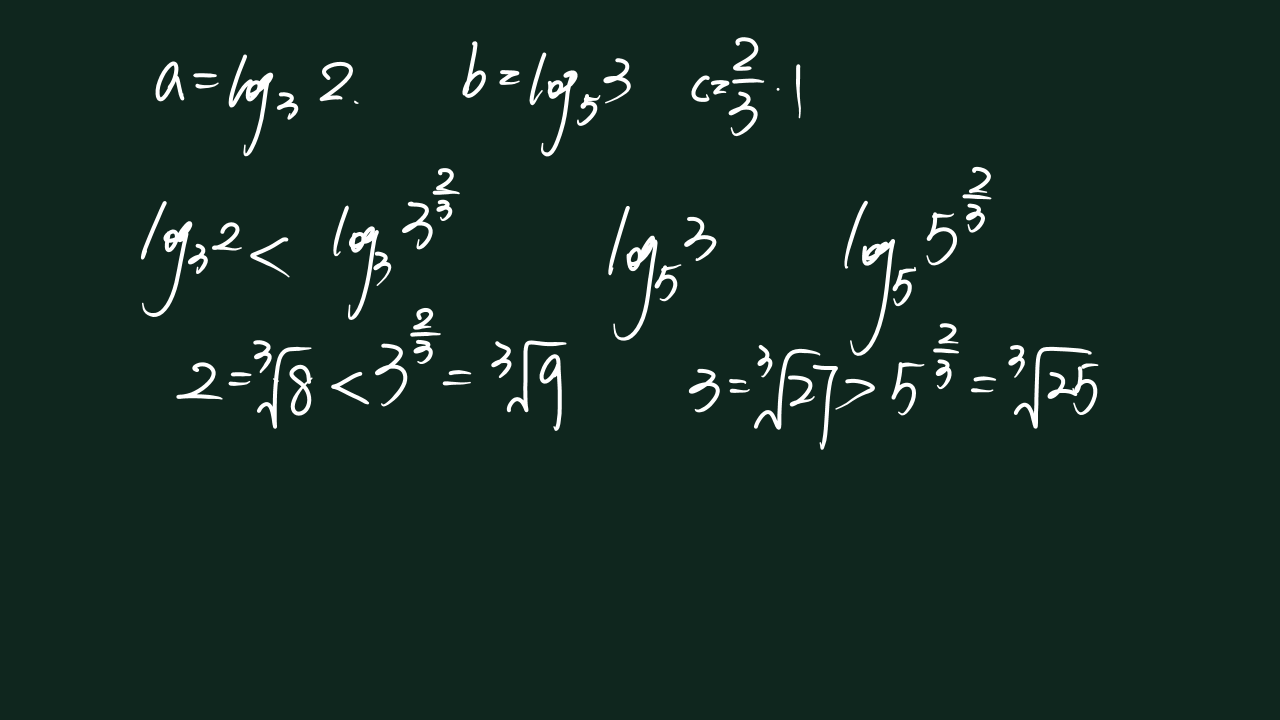 a = log₃ 2. b = log₅ 3 c = 2/3 · 1
log₃ 2 < log₃ 3^(2/3) log₅ 3 log₅ 5^(2/3)
2 = ∛8 < 3^(2/3) = ∛9 3 = ∛27 > 5^(2/3) = ∛25